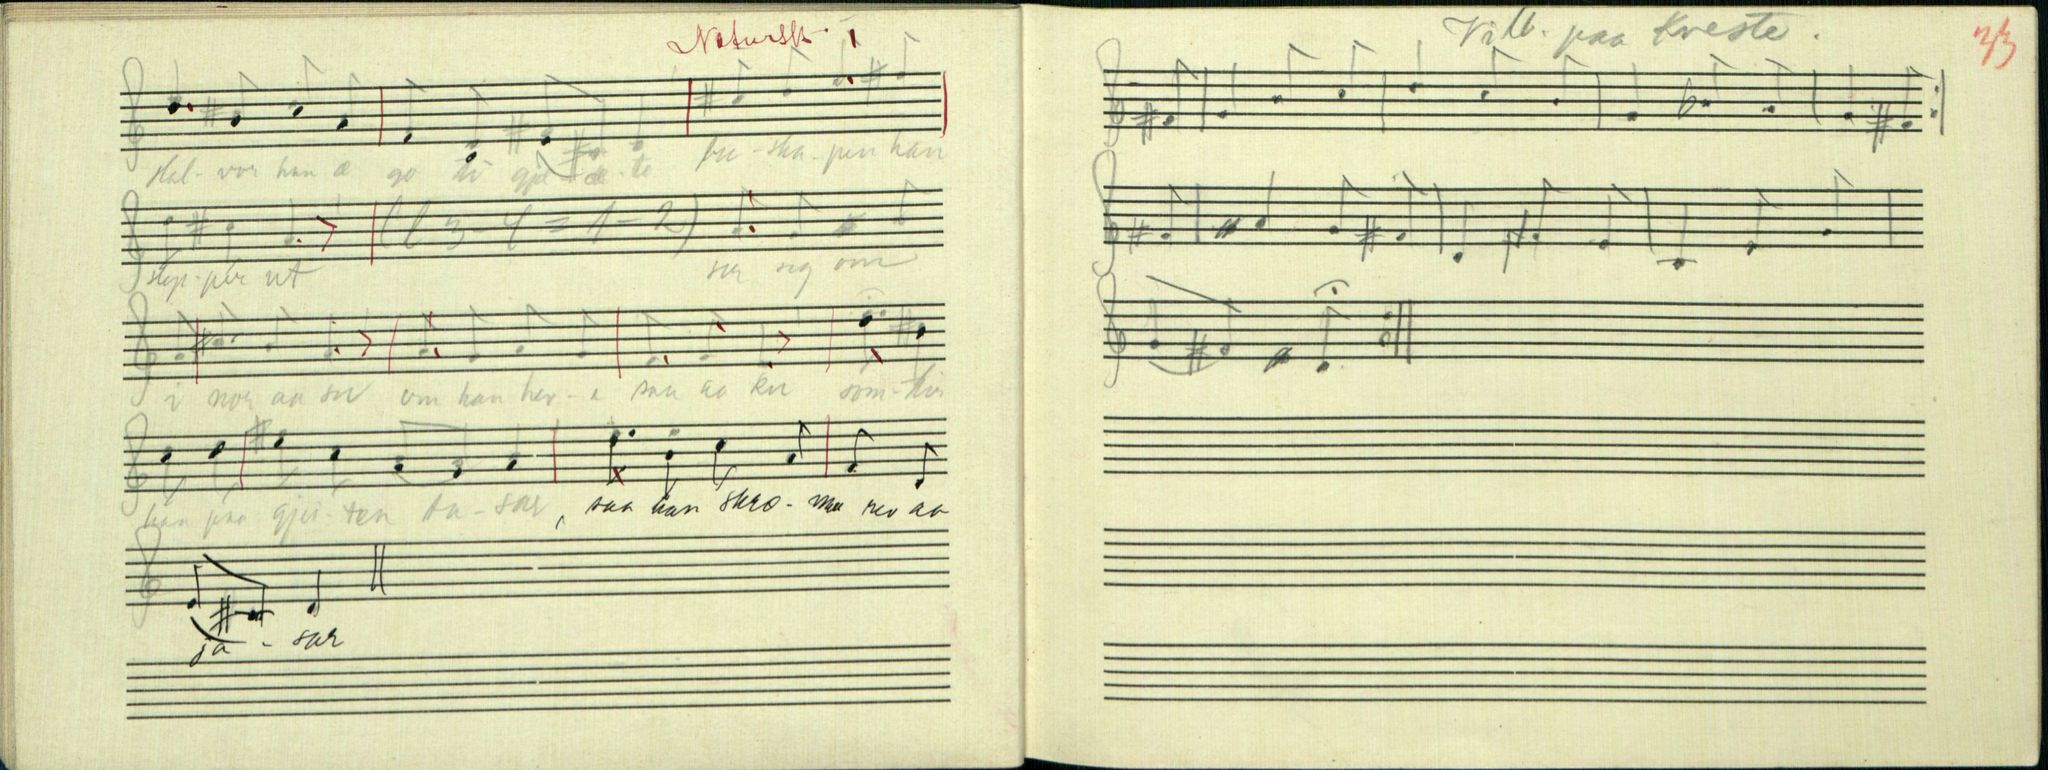 Natursk. 1
Hal-vor han æ go ti gjæ-te bu-ska-pen han
slep-per ut (l 3-4 = 1-2) ser seg om
i nor aa sør om han her-e saa aa ku som-ti
han paa gjei-ten ta-sar, saa han skræ-ma rev aa
ja-sar
Vilb. paa Kveste.
33